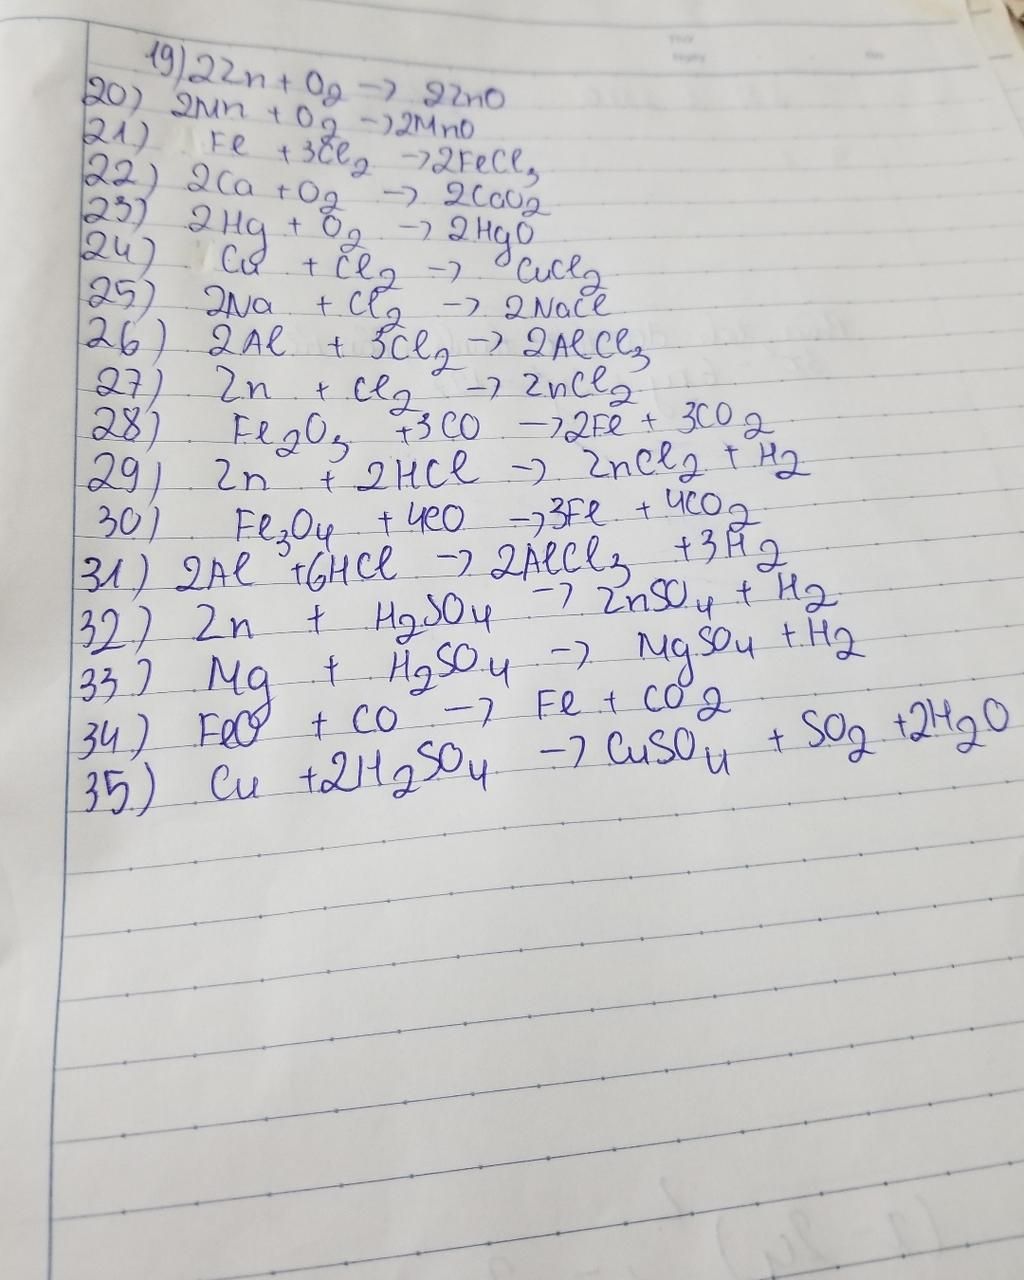 19) 2Zn + O2 → 2ZnO
20) 2Mn + O2 → 2MnO
21) Fe + 3Cl2 → 2FeCl3
22) 2Ca + O2 → 2CaO2
23) 2Hg + O2 → 2HgO
24) Cu + Cl2 → CuCl2
25) 2Na + Cl2 → 2NaCl
26) 2Al + 3Cl2 → 2AlCl3
27) Zn + Cl2 → ZnCl2
28) Fe2O3 + 3CO → 2Fe + 3CO2
29) Zn + 2HCl → ZnCl2 + H2
30) Fe3O4 + 4CO → 3Fe + 4CO2
31) 2Al + 6HCl → 2AlCl3 + 3H2
32) Zn + H2SO4 → ZnSO4 + H2
33) Mg + H2SO4 → MgSO4 + H2
34) FeO + CO → Fe + CO2
35) Cu + 2H2SO4 → CuSO4 + SO2 + 2H2O